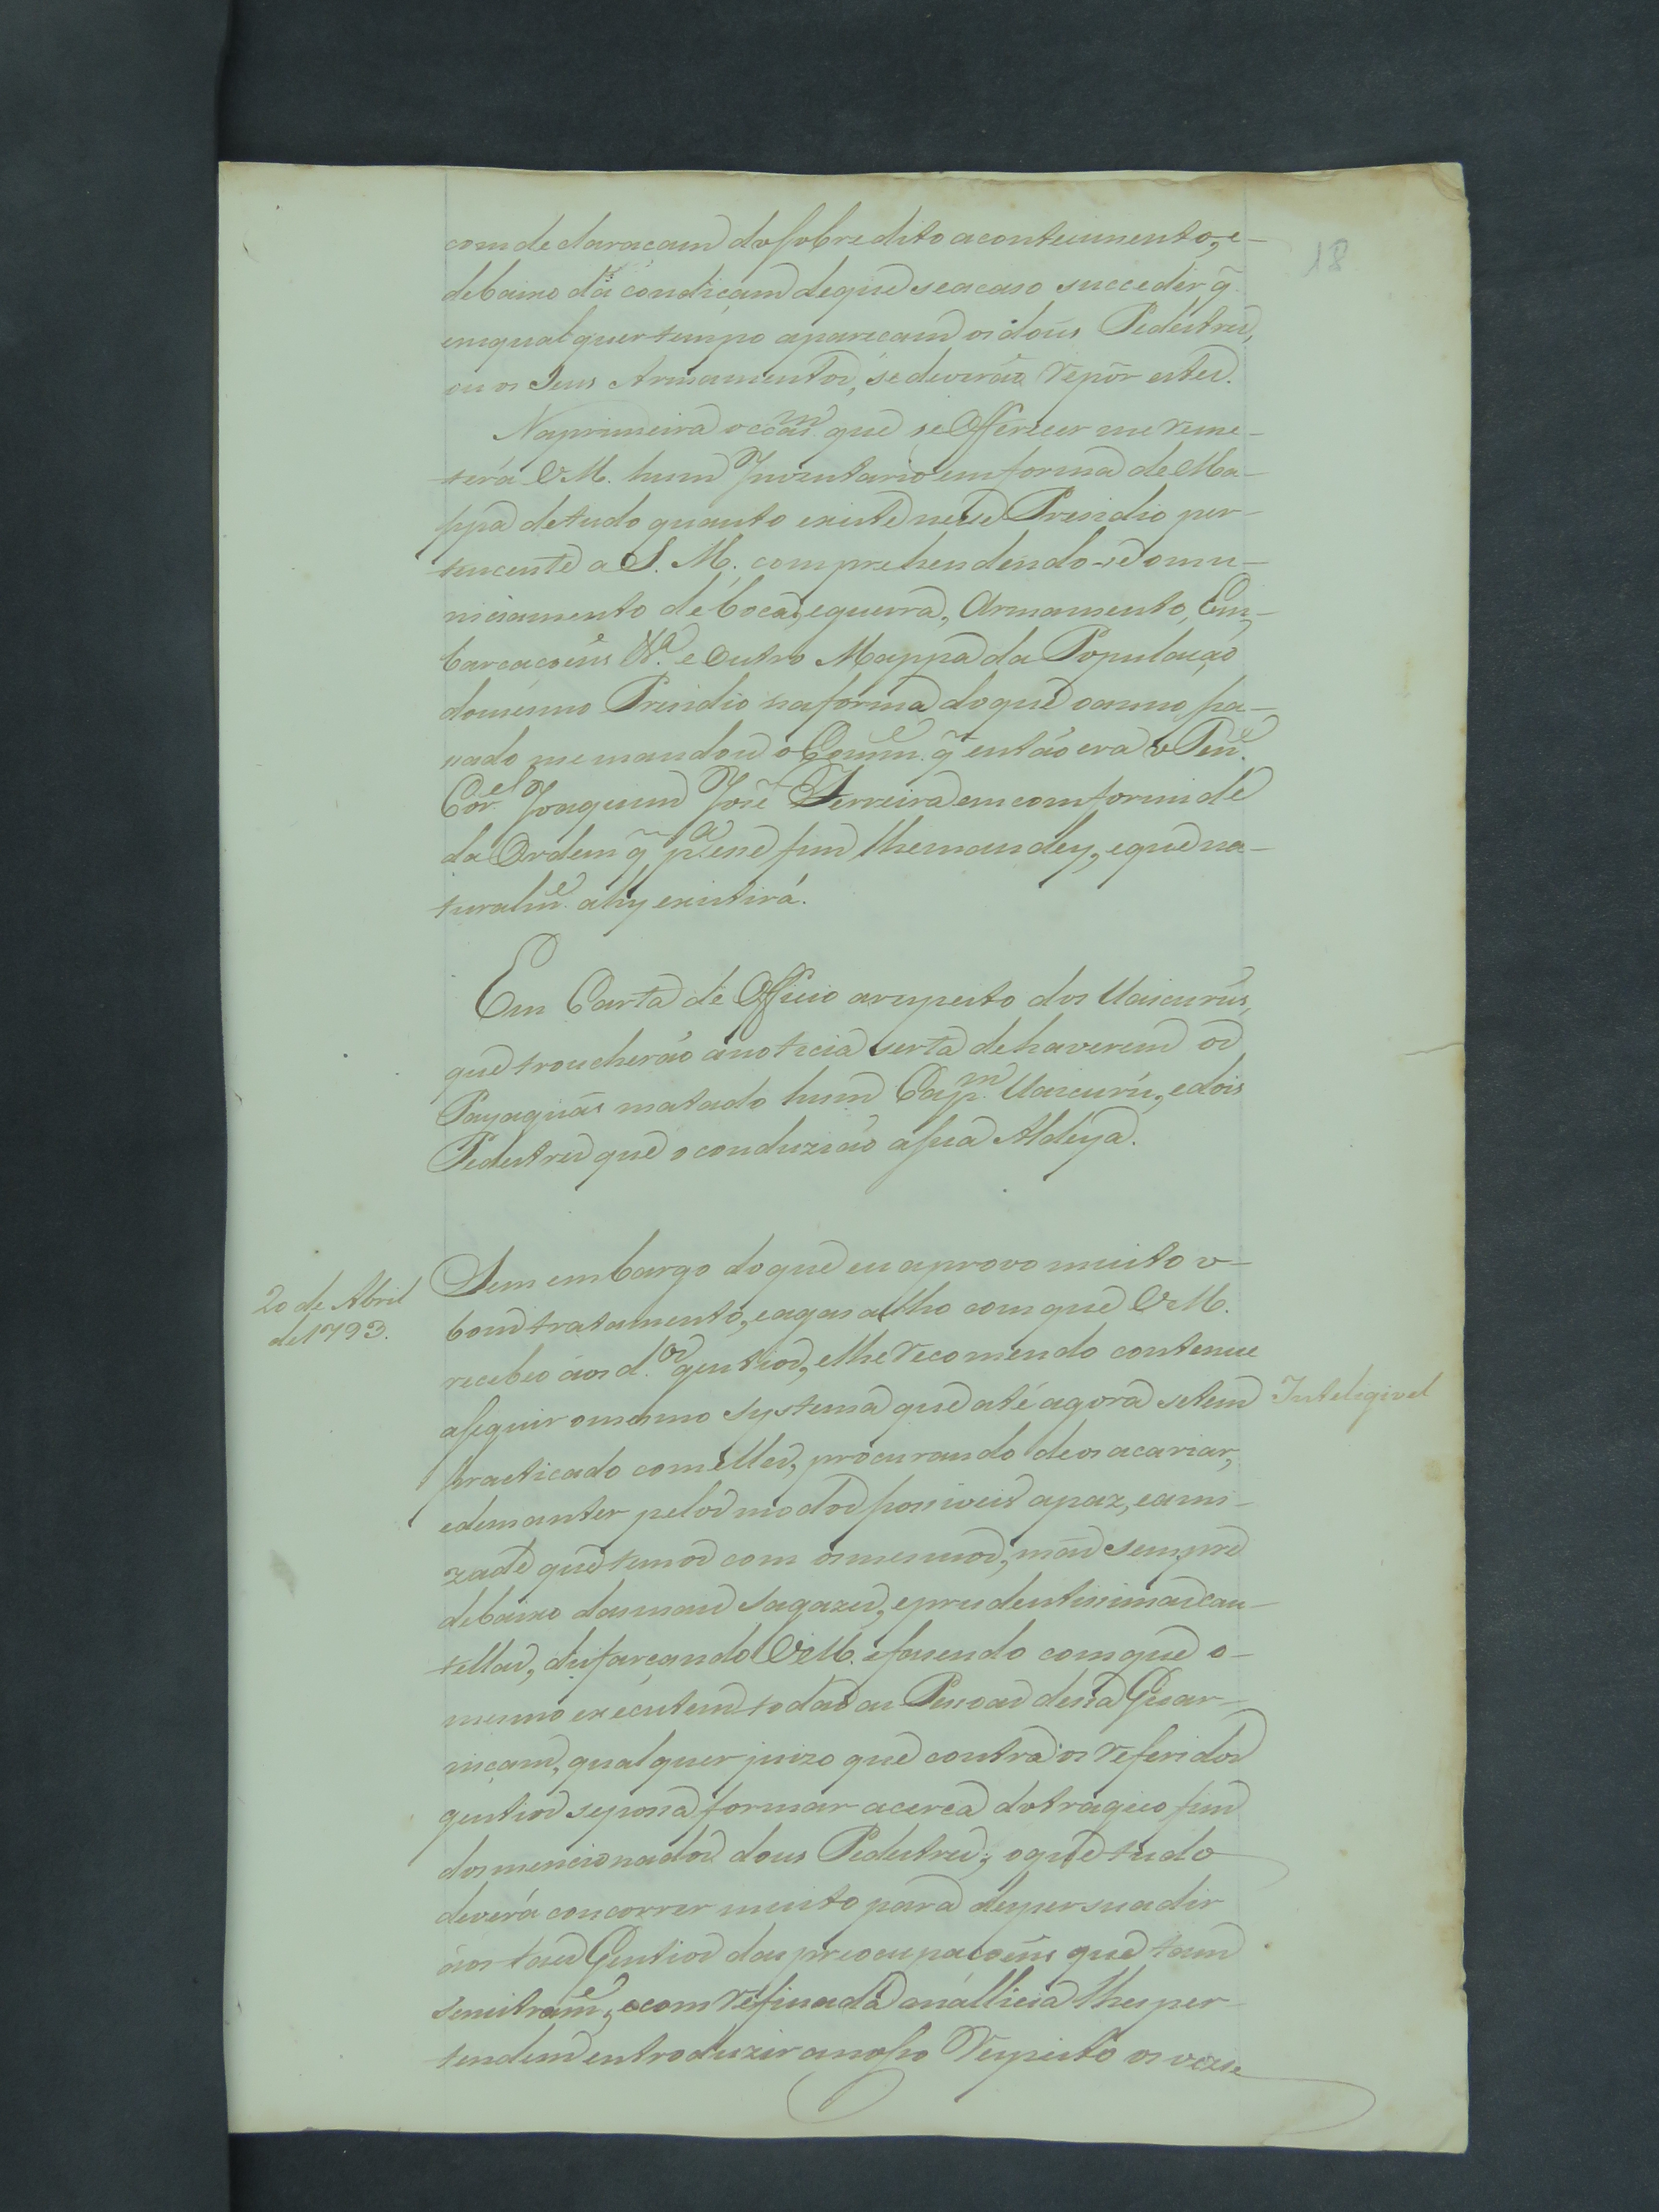 18
com declaraçam do sobredito acontecimento, e
debaixo da condiçam de que se acaso succeder q̃
em qualquer tempo apareçam os dous Pedestres,
ou os Seus Armamentos, se deverão repôr estes.
Na primeira occam. que se Offerecer me reme-
terá V.M. hum Inventario em forma de Ma-
ppa de tudo quanto existe nesse Presidio per-
tencente a S. M. comprehendendo-se o mu-
niciamento de boca, e guerra, Armamento, Em-
barcaçoẽns &.a e Outro Mappa da População
do mesmo Presidio na forma do que o anno pa-
ssado me mandou o Comm.e q̃ então era o Ten.e
Cor.el Joaquim José Ferreira em comformide
da Ordem q̃ p.a esse fim lhe mandey, e que na-
turalm.e ahy existirá.
Em Carta de Officio a respeito dos Uaicurús,
que troucherão a noticia serta de haverem os
Payaguás matado hum Cap.m Uaicurú, e dois
Pedestres que o conduzião a sua Aldeya.
20 de Abril
de 1793.
Sem embargo do que eu aprovo muito o
bom tratamento, e agasalho com que V.M.
recebeo áos d.os gentios, e lhe recomendo contenue
a seguir o mesmo systema que até agora se tem
Inteligivel
practicado com elles, procurando de os acariar,
e de manter pelos modos possiveis a paz, e ami-
zade que temos com os mesmos, mas sempre
debaixo das mais sagazes, e prudentissimas cau-
tellas, disfarçando V.M. e fasendo com que o
mesmo executem todas as Pessoas dessa Guar-
niçam, qualquer juizo que contra os referidos
gentios se possa formar acerca do tragico fim
dos mencionados dous Pedestres; o que tudo
deverá concorrer muito para despersuadir
áos taes Gentios das preocupaçoẽns que tam
senistram.e, e com refinada mallicia lhes per-
tendem entroduzir a nosso respeito os vezi